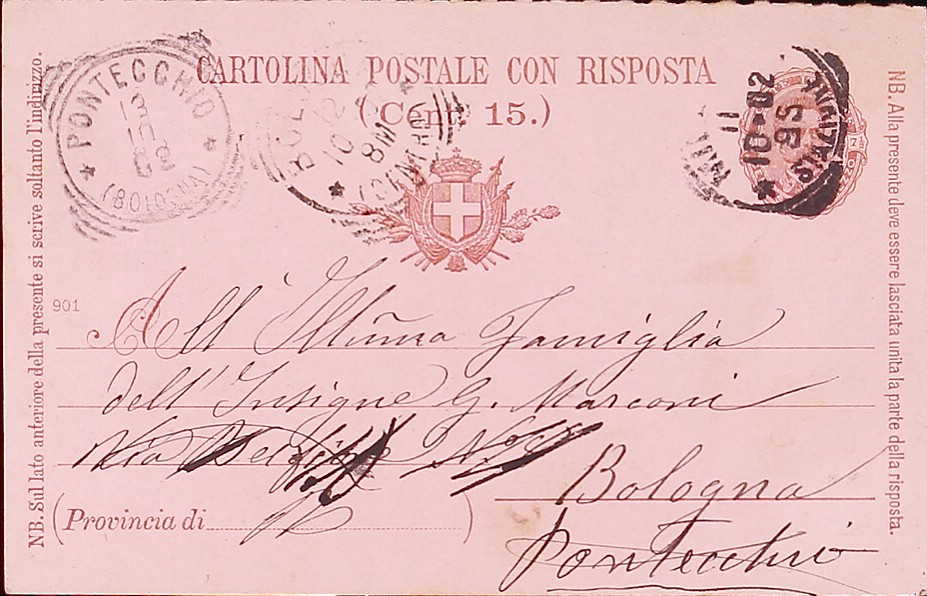 CARTOLINA POSTALE CON RISPOSTA
(Cent. 15.)
PONTECCHIO
(BOLOGNA)
10 - 02
NB. Sul lato anteriore della presente si scrive soltanto l'indirizzo.
NB. Alla presente deve essere lasciata unita la parte della risposta.
901
All' Illm̃a Famiglia
dell' Insigne G. Marconi
Via
Bologna
(Provincia di)
Pontecchio